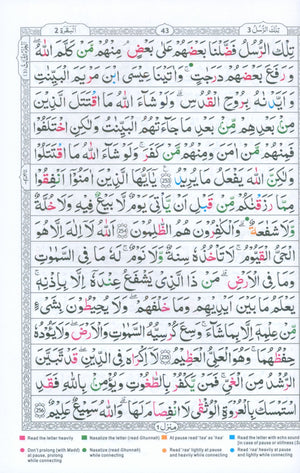 البقرة 2
43
تلك الرسل 3
تِلْكَ الرُّسُلُ فَضَّلْنَا بَعْضَهُمْ عَلٰى بَعْضٍ مِنْهُمْ مَّنْ كَلَّمَ اللّٰهُ
وَرَفَعَ بَعْضَهُمْ دَرَجٰتٍ وَاٰتَيْنَا عِيْسَى ابْنَ مَرْيَمَ الْبَيِّنٰتِ
وَاَيَّدْنٰهُ بِرُوْحِ الْقُدُسِ وَلَوْ شَآءَ اللّٰهُ مَا اقْتَتَلَ الَّذِيْنَ
مِنْ بَعْدِهِمْ مِّنْ بَعْدِ مَا جَآءَتْهُمُ الْبَيِّنٰتُ وَلٰكِنِ اخْتَلَفُوْا
فَمِنْهُمْ مَّنْ اٰمَنَ وَمِنْهُمْ مَّنْ كَفَرَ وَلَوْ شَآءَ اللّٰهُ مَا اقْتَتَلُوْا
وَلٰكِنَّ اللّٰهَ يَفْعَلُ مَا يُرِيْدُ 253 يٰۤاَيُّهَا الَّذِيْنَ اٰمَنُوْۤا اَنْفِقُوْا
مِمَّا رَزَقْنٰكُمْ مِّنْ قَبْلِ اَنْ يَّاْتِيَ يَوْمٌ لَّا بَيْعٌ فِيْهِ وَلَا خُلَّةٌ
وَّلَا شَفَاعَةٌ وَالْكٰفِرُوْنَ هُمُ الظّٰلِمُوْنَ 254 اَللّٰهُ لَاۤ اِلٰهَ اِلَّا هُوَ
الْحَيُّ الْقَيُّوْمُ لَا تَاْخُذُهٗ سِنَةٌ وَّلَا نَوْمٌ لَهٗ مَا فِي السَّمٰوٰتِ
وَمَا فِي الْاَرْضِ مَنْ ذَا الَّذِيْ يَشْفَعُ عِنْدَهٗۤ اِلَّا بِاِذْنِهٖ
يَعْلَمُ مَا بَيْنَ اَيْدِيْهِمْ وَمَا خَلْفَهُمْ وَلَا يُحِيْطُوْنَ بِشَيْءٍ
مِّنْ عِلْمِهٖۤ اِلَّا بِمَا شَآءَ وَسِعَ كُرْسِيُّهُ السَّمٰوٰتِ وَالْاَرْضَ وَلَا يَئُوْدُهٗ
حِفْظُهُمَا وَهُوَ الْعَلِيُّ الْعَظِيْمُ 255 لَاۤ اِكْرَاهَ فِي الدِّيْنِ قَدْ تَّبَيَّنَ
الرُّشْدُ مِنَ الْغَيِّ فَمَنْ يَّكْفُرْ بِالطَّاغُوْتِ وَيُؤْمِنْ بِاللّٰهِ فَقَدِ
اسْتَمْسَكَ بِالْعُرْوَةِ الْوُثْقٰى لَا انْفِصَامَ لَهَا وَاللّٰهُ سَمِيْعٌ عَلِيْمٌ 256
منزل ١
Read the letter heavily
Nasalize the letter (read Ghunnah)
At pause read 'taa' as 'haa'
Read the letter with echo sound
Don't prolong (with Madd) at pause, prolong while connecting
Nasalize (read Ghunnah) while connecting
Read 'raa' lightly at pause and heavily while connecting
Read 'raa' heavily at pause and lightly while connecting